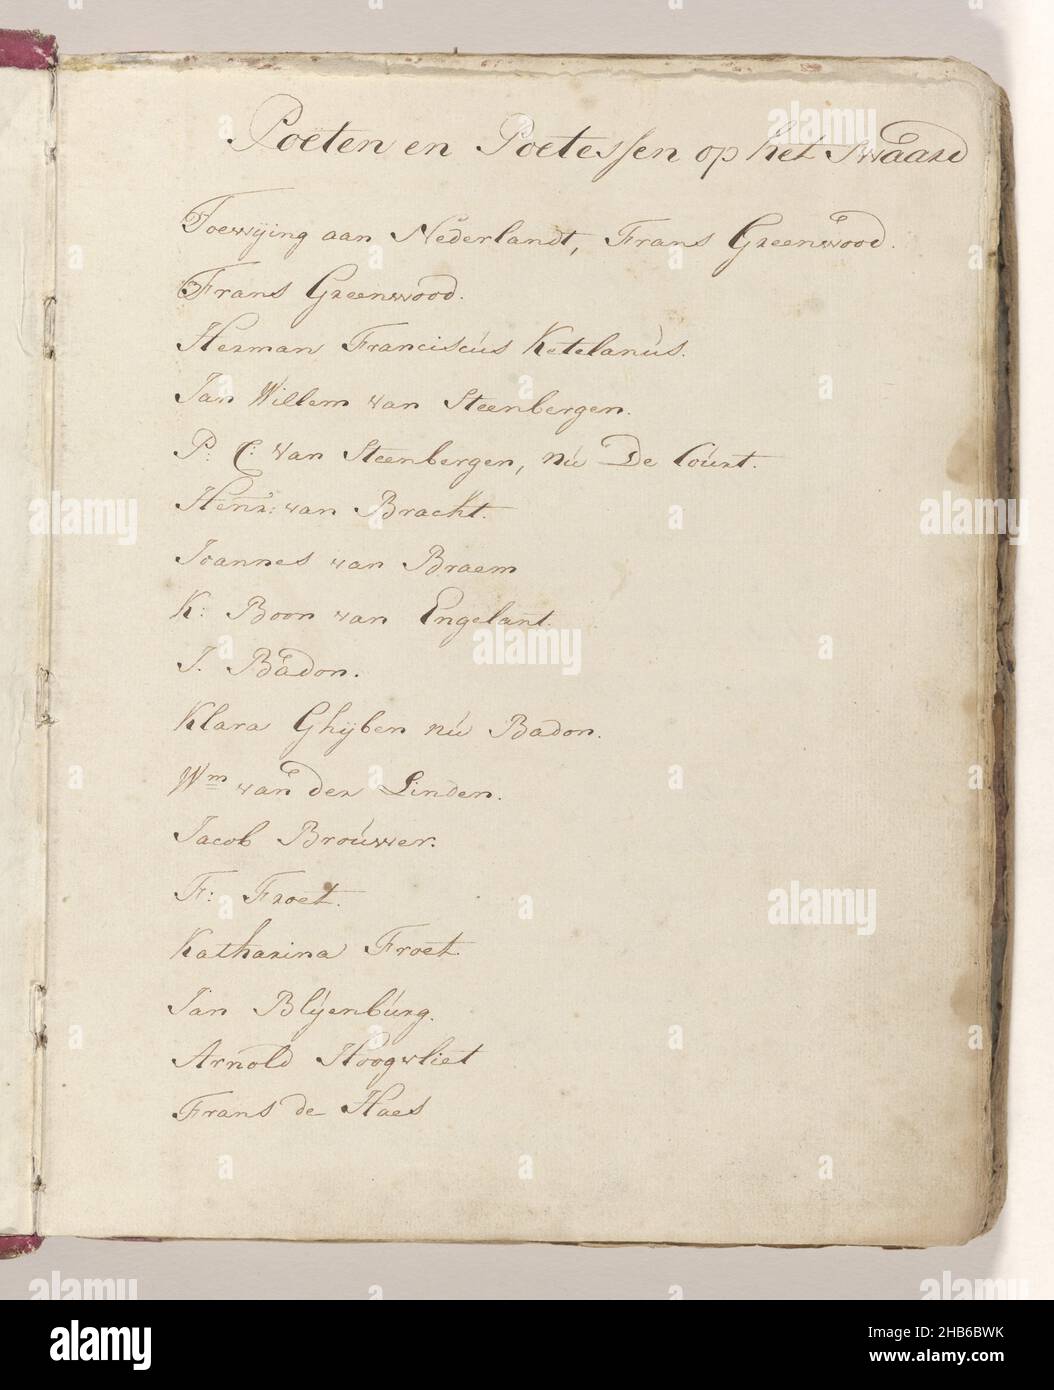 Poëten en Poëtessen op het Swaard
Toewijing aan Nederlandt, Frans Greenwood.
Frans Greenwood.
Herman Franciscús Ketelanús.
Jan Willem van Steenbergen.
P: C: van Steenbergen, nú De Coúrt.
Henr: van Bracht.
Joannes van Braem
K: Boon van Engelant.
J. Badon.
Klara Ghijben nú Badon.
Wm van der Linden.
Jacob Broúwer.
F: Froet.
Katharina Froet.
Jan Blijenbúrg.
Arnold Hoogvliet
Frans de Haes
alamy
Image ID: 2HB6BWK
www.alamy.com